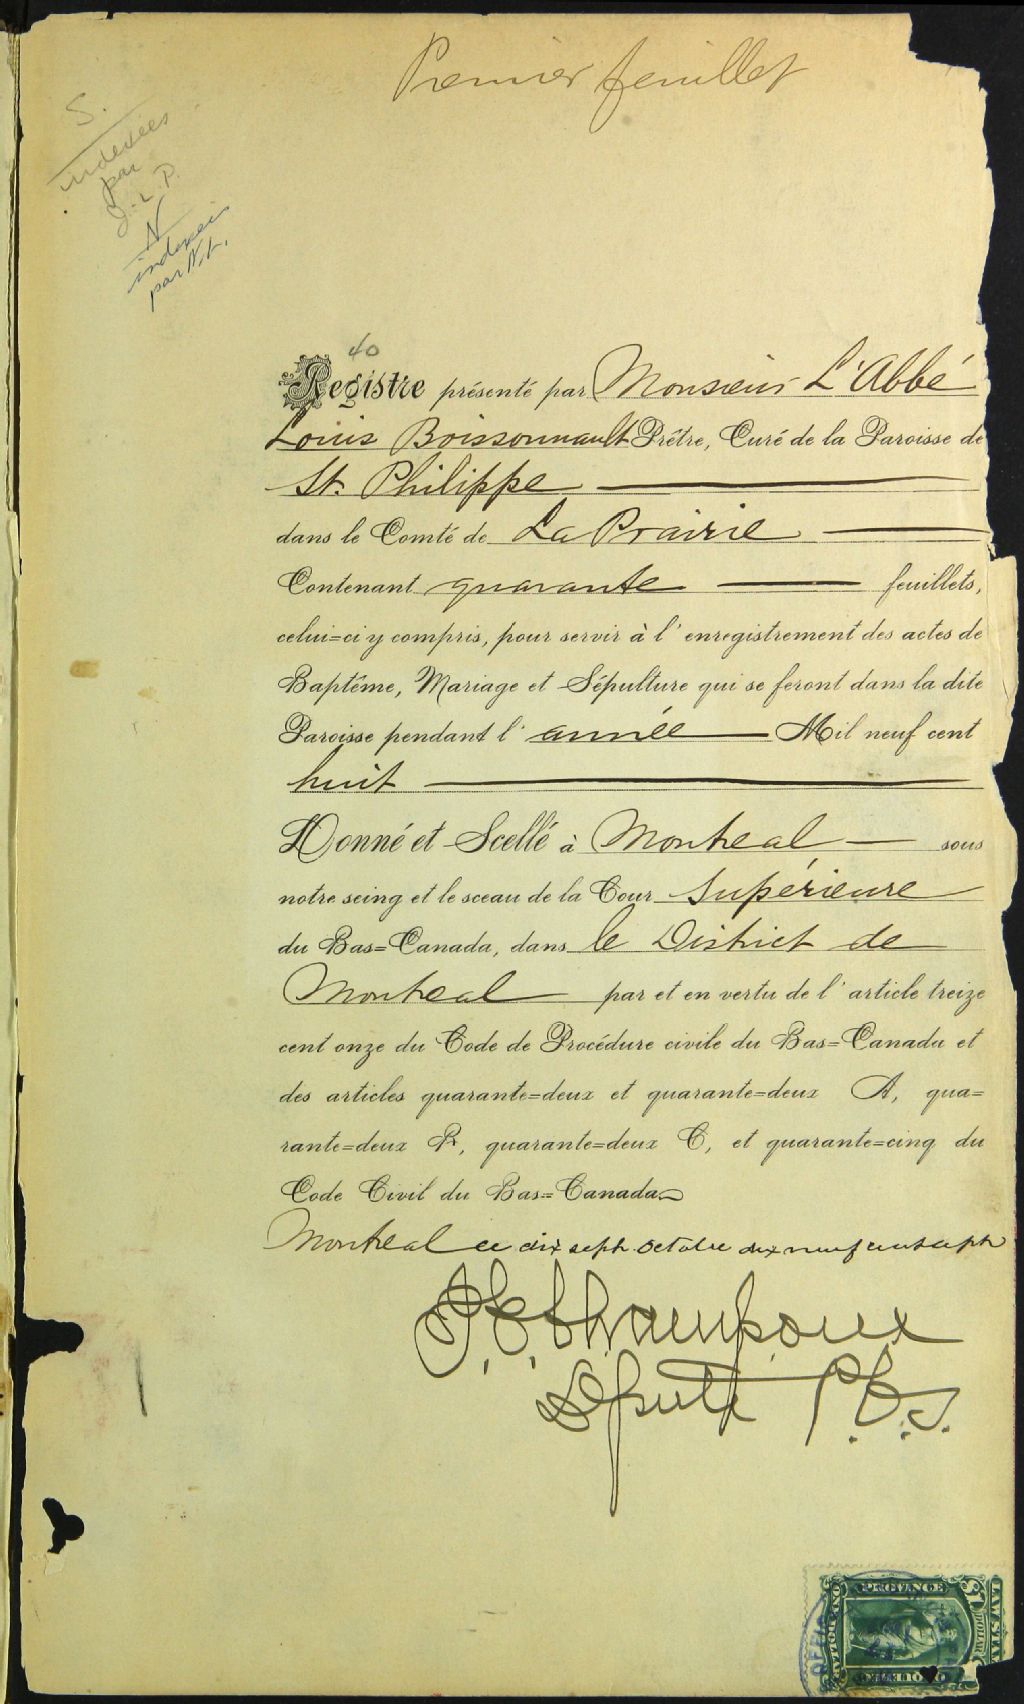 Premier feuillet
S.
indexées
par
J. L. P.
N
indexées
par N.L.
40
Registre présenté par Monsieur L'Abbé
Louis Boissonnault Prêtre, Curé de la Paroisse de
St. Philippe
dans le Comté de La Prairie
Contenant quarante feuillets,
celui=ci y compris, pour servir à l'enregistrement des actes de
Baptême, Mariage et Sépulture qui se feront dans la dite
Paroisse pendant l'année Mil neuf cent
huit
Donné et Scellé à Montreal sous
notre seing et le sceau de la Cour Supérieure
du Bas=Canada, dans le District de
Montreal par et en vertu de l'article treize
cent onze du Code de Procédure civile du Bas=Canada et
des articles quarante=deux et quarante=deux A, qua=
rante=deux B, quarante=deux C, et quarante=cinq du
Code Civil du Bas=Canada
Montreal ce dix sept Octobre dix neuf cent sept
J. E. Champoux
Député P.C.S.
PROVINCE
$1
DOLLAR
LAW STA
QUEBEC